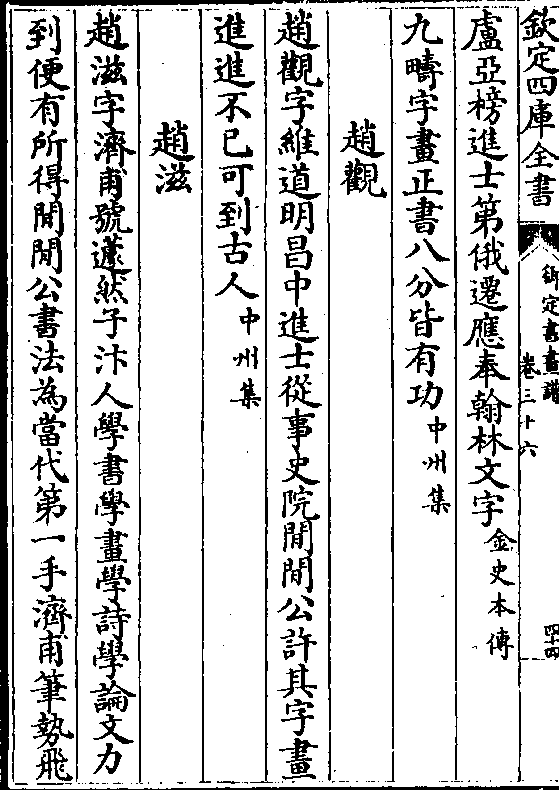 欽定四庫全書
御定書畫譜
卷三十六
四十四
盧亞榜進士第俄遷應奉翰林文字金史本傳
九疇字畫正書八分皆有功中州集
趙觀
趙觀字維道明昌中進士從事史院閒閒公許其字畫
進進不已可到古人中州集
趙滋
趙滋字濟甫號蘧然子汴人學書學畫學詩學論文力
到便有所得閒閒公書法為當代第一手濟甫筆勢飛